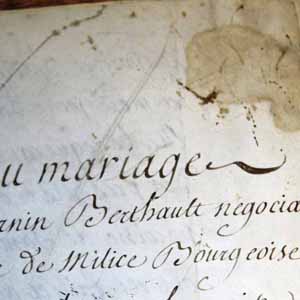 u mariage
rnin Berthault negocia
e de Milice Bourgeoise